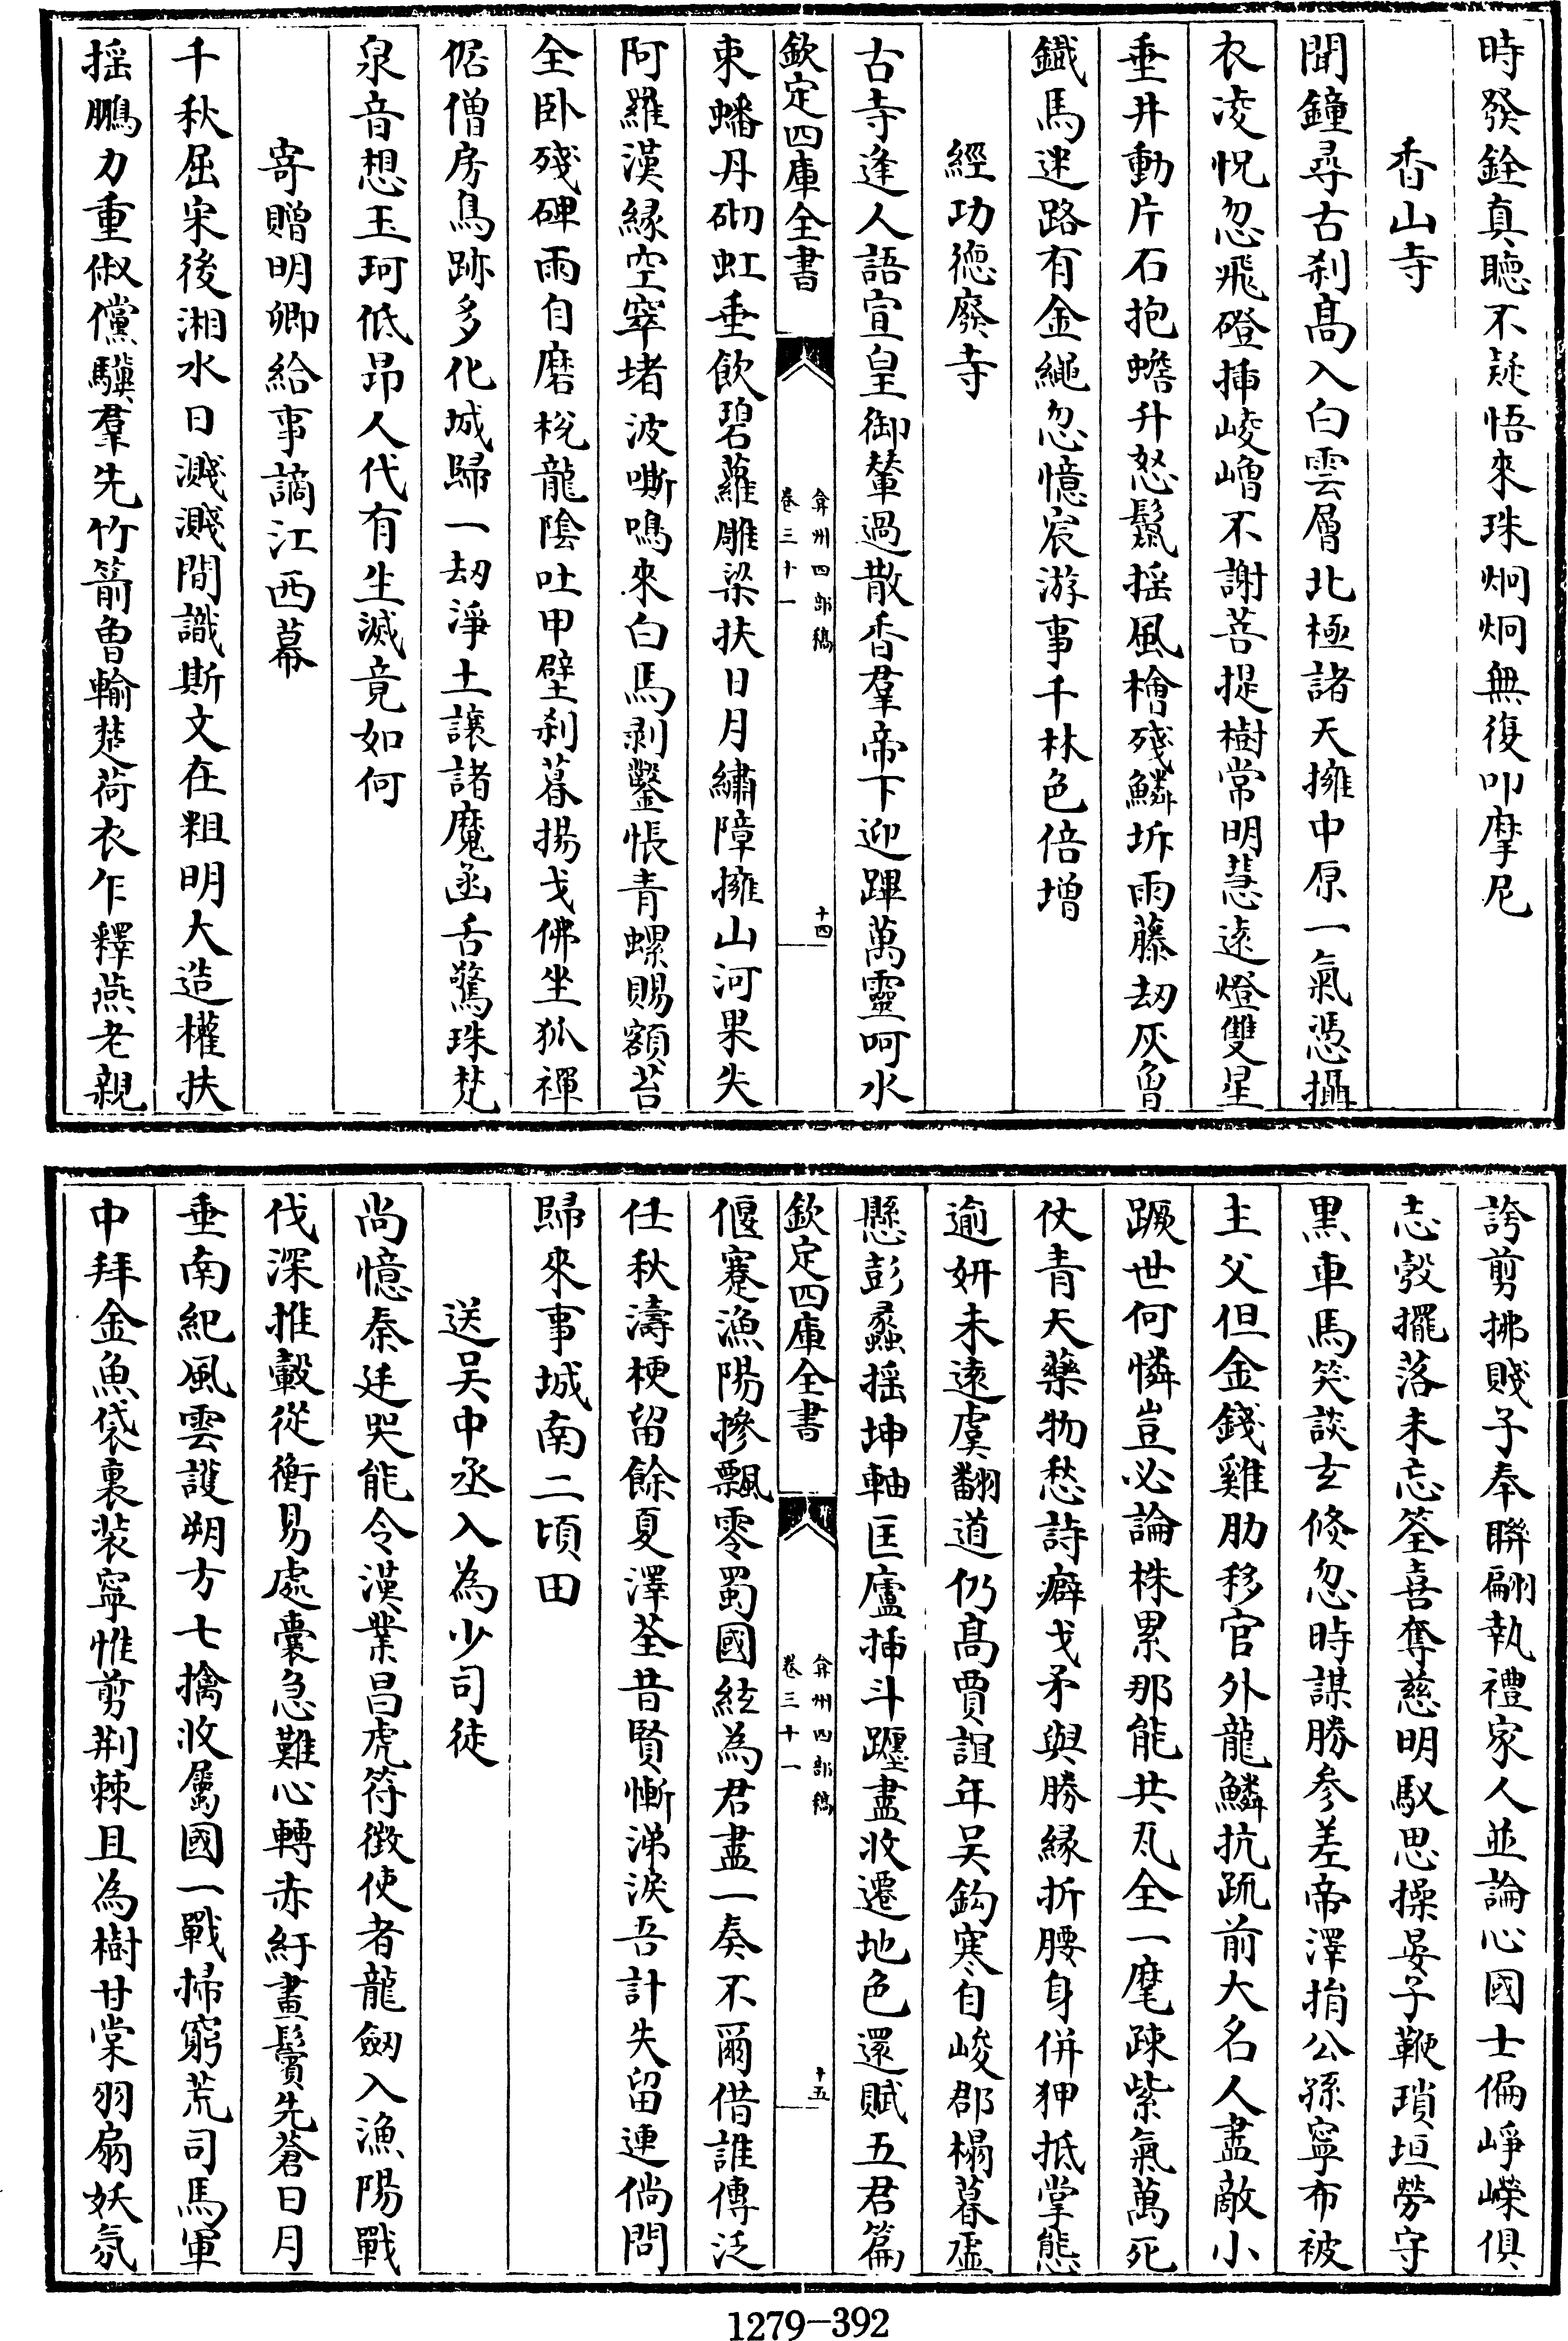 時發銓真聽不疑悟來珠炯炯無復叩摩尼
香山寺
聞鐘尋古刹髙入白雲層北極諸天擁中原一氣憑攝
衣凌怳忽飛磴揷崚嶒不謝菩提樹常明慧遠燈雙星
垂井動片石抱蟾升怒鬛揺風檜殘鱗坼雨藤劫灰魯
鐵馬迷路有金繩忽憶宸游事千林色倍增
經功徳廢寺
古寺逢人語宣皇御輦過散香羣帝下迎蹕萬靈呵水
欽定四庫全書
弇州四部稿
卷三十一
十四
東蟠丹砌虹垂飲碧蘿雕梁扶日月繡障擁山河果失
阿羅漢縁空窣堵波嘶鳴來白馬剥鑿悵青螺賜額苔
全卧殘碑雨自磨松龍陰吐甲壁刹暮揚戈佛坐狐禪
倨僧房鳥跡多化城歸一劫淨土讓諸魔函舌驚珠梵
泉音想玉珂低昻人代有生滅竟如何
寄贈明卿給事謫江西幕
千秋屈宋後湘水日濺濺間識斯文在粗明大造權扶
揺鵬力重俶儻驥羣先竹箭魯輸楚荷衣乍釋燕老親
誇剪拂賤子奉聯翩執禮家人並論心國士偏崢嶸俱
志彀擺落未忘筌喜奪慈明馭思操晏子鞭瑣垣勞守
黒車馬笑談𤣥倐忽時謀勝參差帝澤捐公孫寧布被
主父但金錢雞肋移官外龍鱗抗疏前大名人盡敵小
蹶世何憐豈必論株累那能共瓦全一麾疎紫氣萬死
仗青天藥物愁詩癖戈矛與勝縁折腰身併狎抵掌態
逾妍未遠虞翻道仍髙賈誼年吴鈎寒自峻郡榻暮虛
懸彭蠡揺坤軸匡廬揷斗躔盡收遷地色還賦五君篇
欽定四庫全書
弇州四部稿
卷三十一
十五
偃蹇漁陽摻飄零蜀國絃為君盡一奏不爾借誰傳泛
任秋濤梗留餘夏澤荃昔賢慚涕淚吾計失留連倘問
歸來事城南二頃田
送吴中丞入為少司徒
尚憶秦廷哭能令漢業昌虎符徴使者龍劒入漁陽戰
伐深推轂從衡易處囊急難心轉赤紆畫鬢先蒼日月
垂南紀風雲護朔方七擒收屬國一戰掃窮荒司馬軍
中拜金魚袋裏裝寧惟剪荆棘且為樹甘棠羽扇妖氛
1279-392